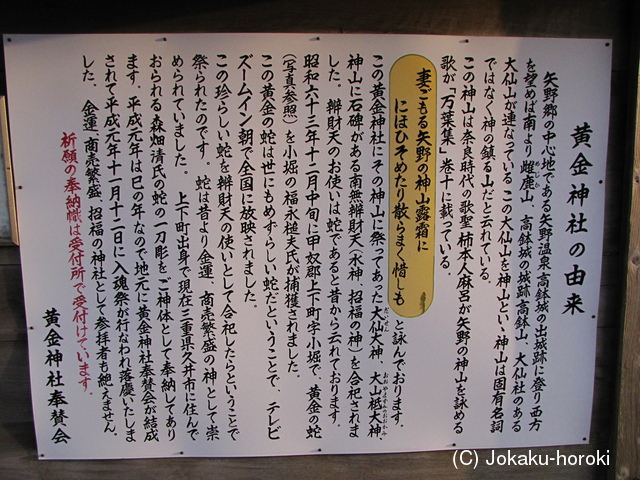 黄金神社の由来
矢野郷の中心地である矢野温泉高鉢城の出城跡に登り西方
を望めば南より雌鹿山、高鉢城の城跡高鉢山、大仙社のある
めじか
大仙山が連なっている この大仙山を神山といい神山は固有名詞
ではなく神の鎮る山だと云れている。
この神山は奈良時代の歌聖 柿本人麻呂が矢野の神山を詠める
歌が「万葉集」巻十に載っている。
妻ごもる矢野の神山露霜に
にほひそめたり散らまく惜しも
と詠んでおります。
この黄金神社にその神山に祭ってあった大仙大神、大山祗大神、
だいせん
おおやまずみおおかみ
神山に石碑がある南無辯財天（水神、招福の神）を合祀されま
した。 辯財天のお使いは蛇であると昔から云れております。
昭和六十三年十二月中旬に甲奴郡上下町字小堀で、黄金の蛇
（写真参照）を小堀の福永槌夫氏が捕獲されました。
この黄金の蛇は世にもめずらしい蛇だということで、テレビ
ズームイン朝で全国に放映されました。
この珍らしい蛇を辯財天の使いとして合祀したらということで
祭られたのです。 蛇は昔より金運、商売繁盛の神として崇
められていました。 上下町出身で現在三重県久井市に住んで
おられる森畑清氏の蛇の一刀彫をご神体として奉納してあり
ます。平成元年は巳の年なので地元に黄金神社奉賛会が結成
されて平成元年十一月十二日に入魂祭が行なわれ落慶いたしま
した。 金運、商売繁盛、招福の神社として参拝者も絶えません。
祈願の奉納幟は受付所で受付けています。
黄金神社奉賛会
(C) Jokaku-horoki